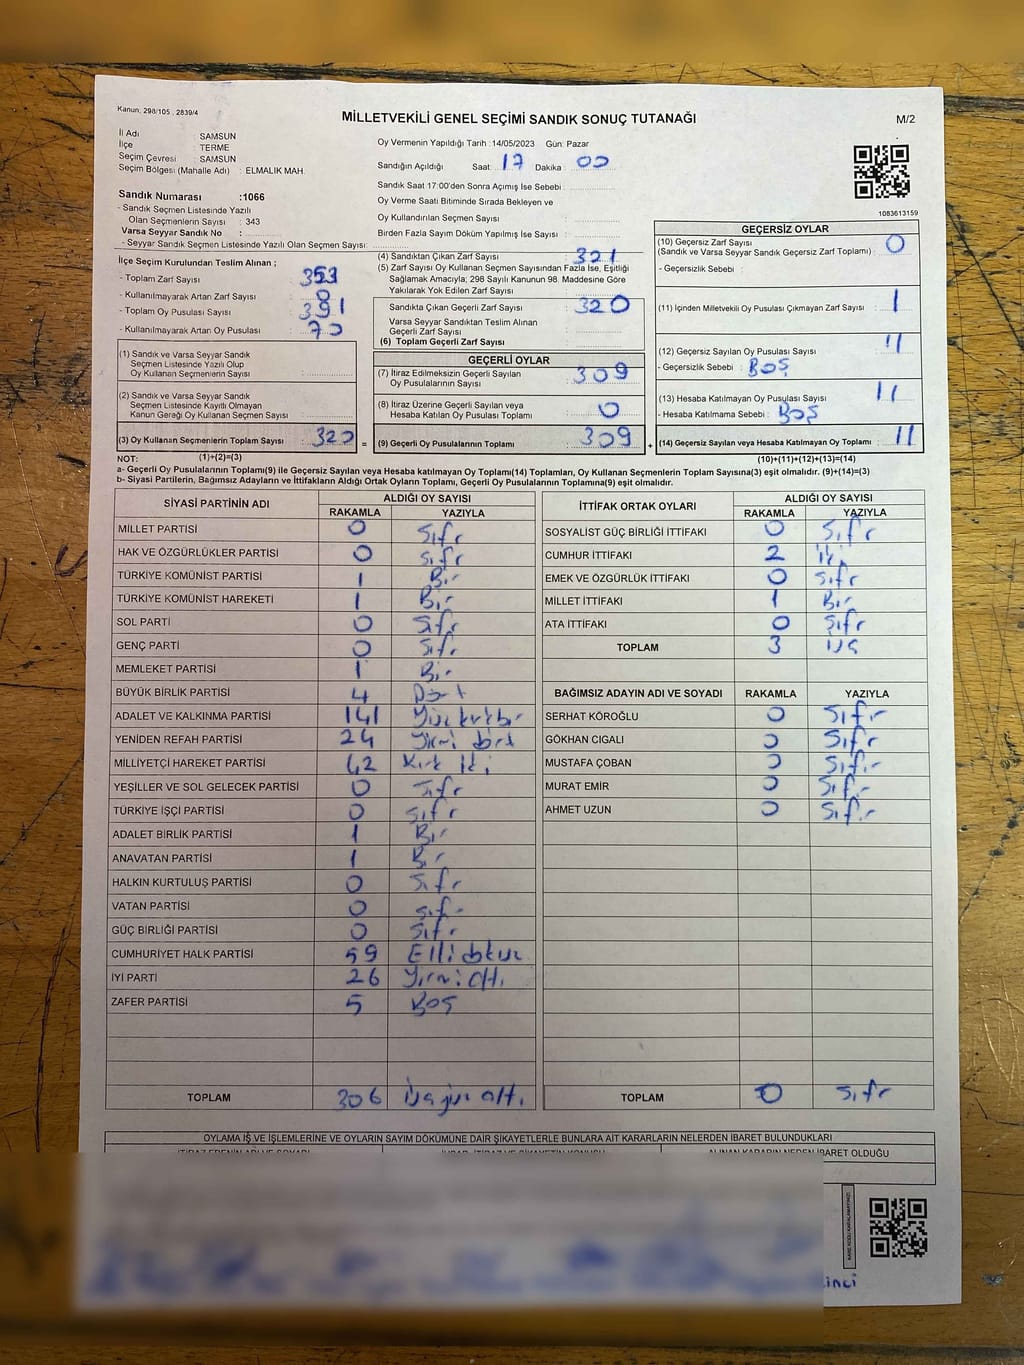 Kanun; 298/105 , 2839/4
MİLLETVEKİLİ GENEL SEÇİMİ SANDIK SONUÇ TUTANAĞI
M/2
İl Adı SAMSUN
İlçe TERME
Seçim Çevresi : SAMSUN
Seçim Bölgesi (Mahalle Adı) : ELMALIK MAH.
Sandık Numarası :1066
- Sandık Seçmen Listesinde Yazılı
Olan Seçmenlerin Sayısı : 343
Varsa Seyyar Sandık No :
- Seyyar Sandık Seçmen Listesinde Yazılı Olan Seçmen Sayısı:
Oy Vermenin Yapıldığı Tarih :14/05/2023 Gün: Pazar
Sandığın Açıldığı Saat: 17 Dakika : 00
Sandık Saat 17:00'den Sonra Açımış İse Sebebi
Oy Verme Saati Bitiminde Sırada Bekleyen ve
Oy Kullandırılan Seçmen Sayısı :
Birden Fazla Sayım Döküm Yapılmış İse Sayısı :
1083613159
İlçe Seçim Kurulundan Teslim Alınan ;
- Toplam Zarf Sayısı : 353
- Kullanılmayarak Artan Zarf Sayısı :
- Toplam Oy Pusulası Sayısı : 391
- Kullanılmayarak Artan Oy Pusulası : 70
(1) Sandık ve Varsa Seyyar Sandık
Seçmen Listesinde Yazılı Olup
Oy Kullanan Seçmenlerin Sayısı :
(2) Sandık ve Varsa Seyyar Sandık
Seçmen Listesinde Kayıtlı Olmayan
Kanun Gereği Oy Kullanan Seçmen Sayısı :
(3) Oy Kullanan Seçmenlerin Toplam Sayısı : 320 =
(4) Sandıktan Çıkan Zarf Sayısı : 321
(5) Zarf Sayısı Oy Kullanan Seçmen Sayısından Fazla İse, Eşitliği
Sağlamak Amacıyla; 298 Sayılı Kanunun 98. Maddesine Göre
Yakılarak Yok Edilen Zarf Sayısı :
Sandıkta Çıkan Geçerli Zarf Sayısı : 320
Varsa Seyyar Sandıktan Teslim Alınan
Geçerli Zarf Sayısı :
(6) Toplam Geçerli Zarf Sayısı :
GEÇERLİ OYLAR
(7) İtiraz Edilmeksizin Geçerli Sayılan
Oy Pusulalarının Sayısı : 309
(8) İtiraz Üzerine Geçerli Sayılan veya
Hesaba Katılan Oy Pusulası Toplamı : 0
(9) Geçerli Oy Pusulalarının Toplamı : 309 +
GEÇERSİZ OYLAR
(10) Geçersiz Zarf Sayısı
(Sandık ve Varsa Seyyar Sandık Geçersiz Zarf Toplamı) : 0
- Geçersizlik Sebebi :
(11) İçinden Milletvekili Oy Pusulası Çıkmayan Zarf Sayısı : 1
(12) Geçersiz Sayılan Oy Pusulası Sayısı : 11
- Geçersizlik Sebebi : BOŞ
(13) Hesaba Katılmayan Oy Pusulası Sayısı : 11
- Hesaba Katılmama Sebebi : BOŞ
(14) Geçersiz Sayılan veya Hesaba Katılmayan Oy Toplamı : 11
NOT: (1)+(2)=(3) (10)+(11)+(12)+(13)=(14)
a- Geçerli Oy Pusulalarının Toplamı(9) ile Geçersiz Sayılan veya Hesaba katılmayan Oy Toplamı(14) Toplamları, Oy Kullanan Seçmenlerin Toplam Sayısına(3) eşit olmalıdır. (9)+(14)=(3)
b- Siyasi Partilerin, Bağımsız Adayların ve İttifakların Aldığı Ortak Oyların Toplamı, Geçerli Oy Pusulalarının Toplamına(9) eşit olmalıdır.
SİYASİ PARTİNİN ADI ALDIĞI OY SAYISI
RAKAMLA YAZIYLA
MİLLET PARTİSİ 0 Sıfır
HAK VE ÖZGÜRLÜKLER PARTİSİ 0 Sıfır
TÜRKİYE KOMÜNİST PARTİSİ 1 Bir
TÜRKİYE KOMÜNİST HAREKETİ 1 Bir
SOL PARTİ 0 Sıfır
GENÇ PARTİ 0 Sıfır
MEMLEKET PARTİSİ 1 Bir
BÜYÜK BİRLİK PARTİSİ 4 Dört
ADALET VE KALKINMA PARTİSİ 141 Yüzkırkbir
YENİDEN REFAH PARTİSİ 24 Yirmi dört
MİLLİYETÇİ HAREKET PARTİSİ 42 Kırk iki
YEŞİLLER VE SOL GELECEK PARTİSİ 0 Sıfır
TÜRKİYE İŞÇİ PARTİSİ 0 Sıfır
ADALET BİRLİK PARTİSİ 1 Bir
ANAVATAN PARTİSİ 1 Bir
HALKIN KURTULUŞ PARTİSİ 0 Sıfır
VATAN PARTİSİ 0 Sıfır
GÜÇ BİRLİĞİ PARTİSİ 0 Sıfır
CUMHURİYET HALK PARTİSİ 59 Elli dokuz
İYİ PARTİ 26 Yirmi altı
ZAFER PARTİSİ 5 Boş
TOPLAM 306 üçyüz altı
İTTİFAK ORTAK OYLARI ALDIĞI OY SAYISI
RAKAMLA YAZIYLA
SOSYALİST GÜÇ BİRLİĞİ İTTİFAKI 0 Sıfır
CUMHUR İTTİFAKI 2 iki
EMEK VE ÖZGÜRLÜK İTTİFAKI 0 Sıfır
MİLLET İTTİFAKI 1 Bir
ATA İTTİFAKI 0 Sıfır
TOPLAM 3 üç
BAĞIMSIZ ADAYIN ADI VE SOYADI RAKAMLA YAZIYLA
SERHAT KÖROĞLU 0 Sıfır
GÖKHAN CIGALI 0 Sıfır
MUSTAFA ÇOBAN 0 Sıfır
MURAT EMİR 0 Sıfır
AHMET UZUN 0 Sıfır
TOPLAM 0 Sıfır
OYLAMA İŞ VE İŞLEMLERİNE VE OYLARIN SAYIM DÖKÜMÜNE DAİR ŞİKAYETLERLE BUNLARA AİT KARARLARIN NELERDEN İBARET BULUNDUKLARI
İTİRAZ EDENİN ADI VE SOYADI İHBAR, İTİRAZ VE ŞİKAYETİN KONUSU ALINAN KARARIN NEDEN İBARET OLDUĞU